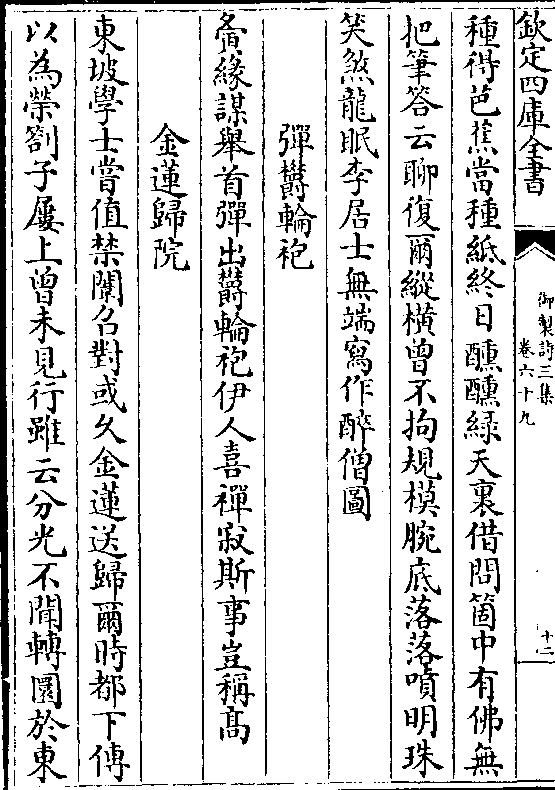 欽定四庫全書
御製詩三集
卷六十九
十二
種得芭蕉當種紙終日醺醺緑天裏借問箇中有佛無
把筆答云聊復爾縱横曾不拘規模腕底落落噴明珠
笑煞龍眠李居士無端寫作醉僧圖
彈鬱輪袍
夤緣謀舉首彈出鬱輪袍伊人喜禪寂斯事豈稱髙
金蓮歸院
東坡學士嘗值禁闌名對或久金蓮送歸爾時都下傳
以為榮劄子屢上曾未見行雖云分光不聞轉圜於東